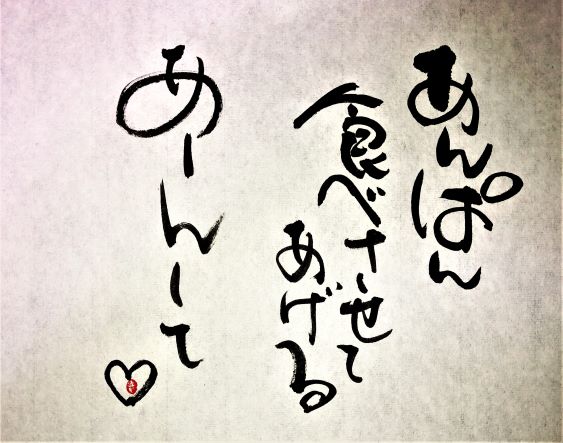 あんぱん
食べさせて
あげる
あーんーて